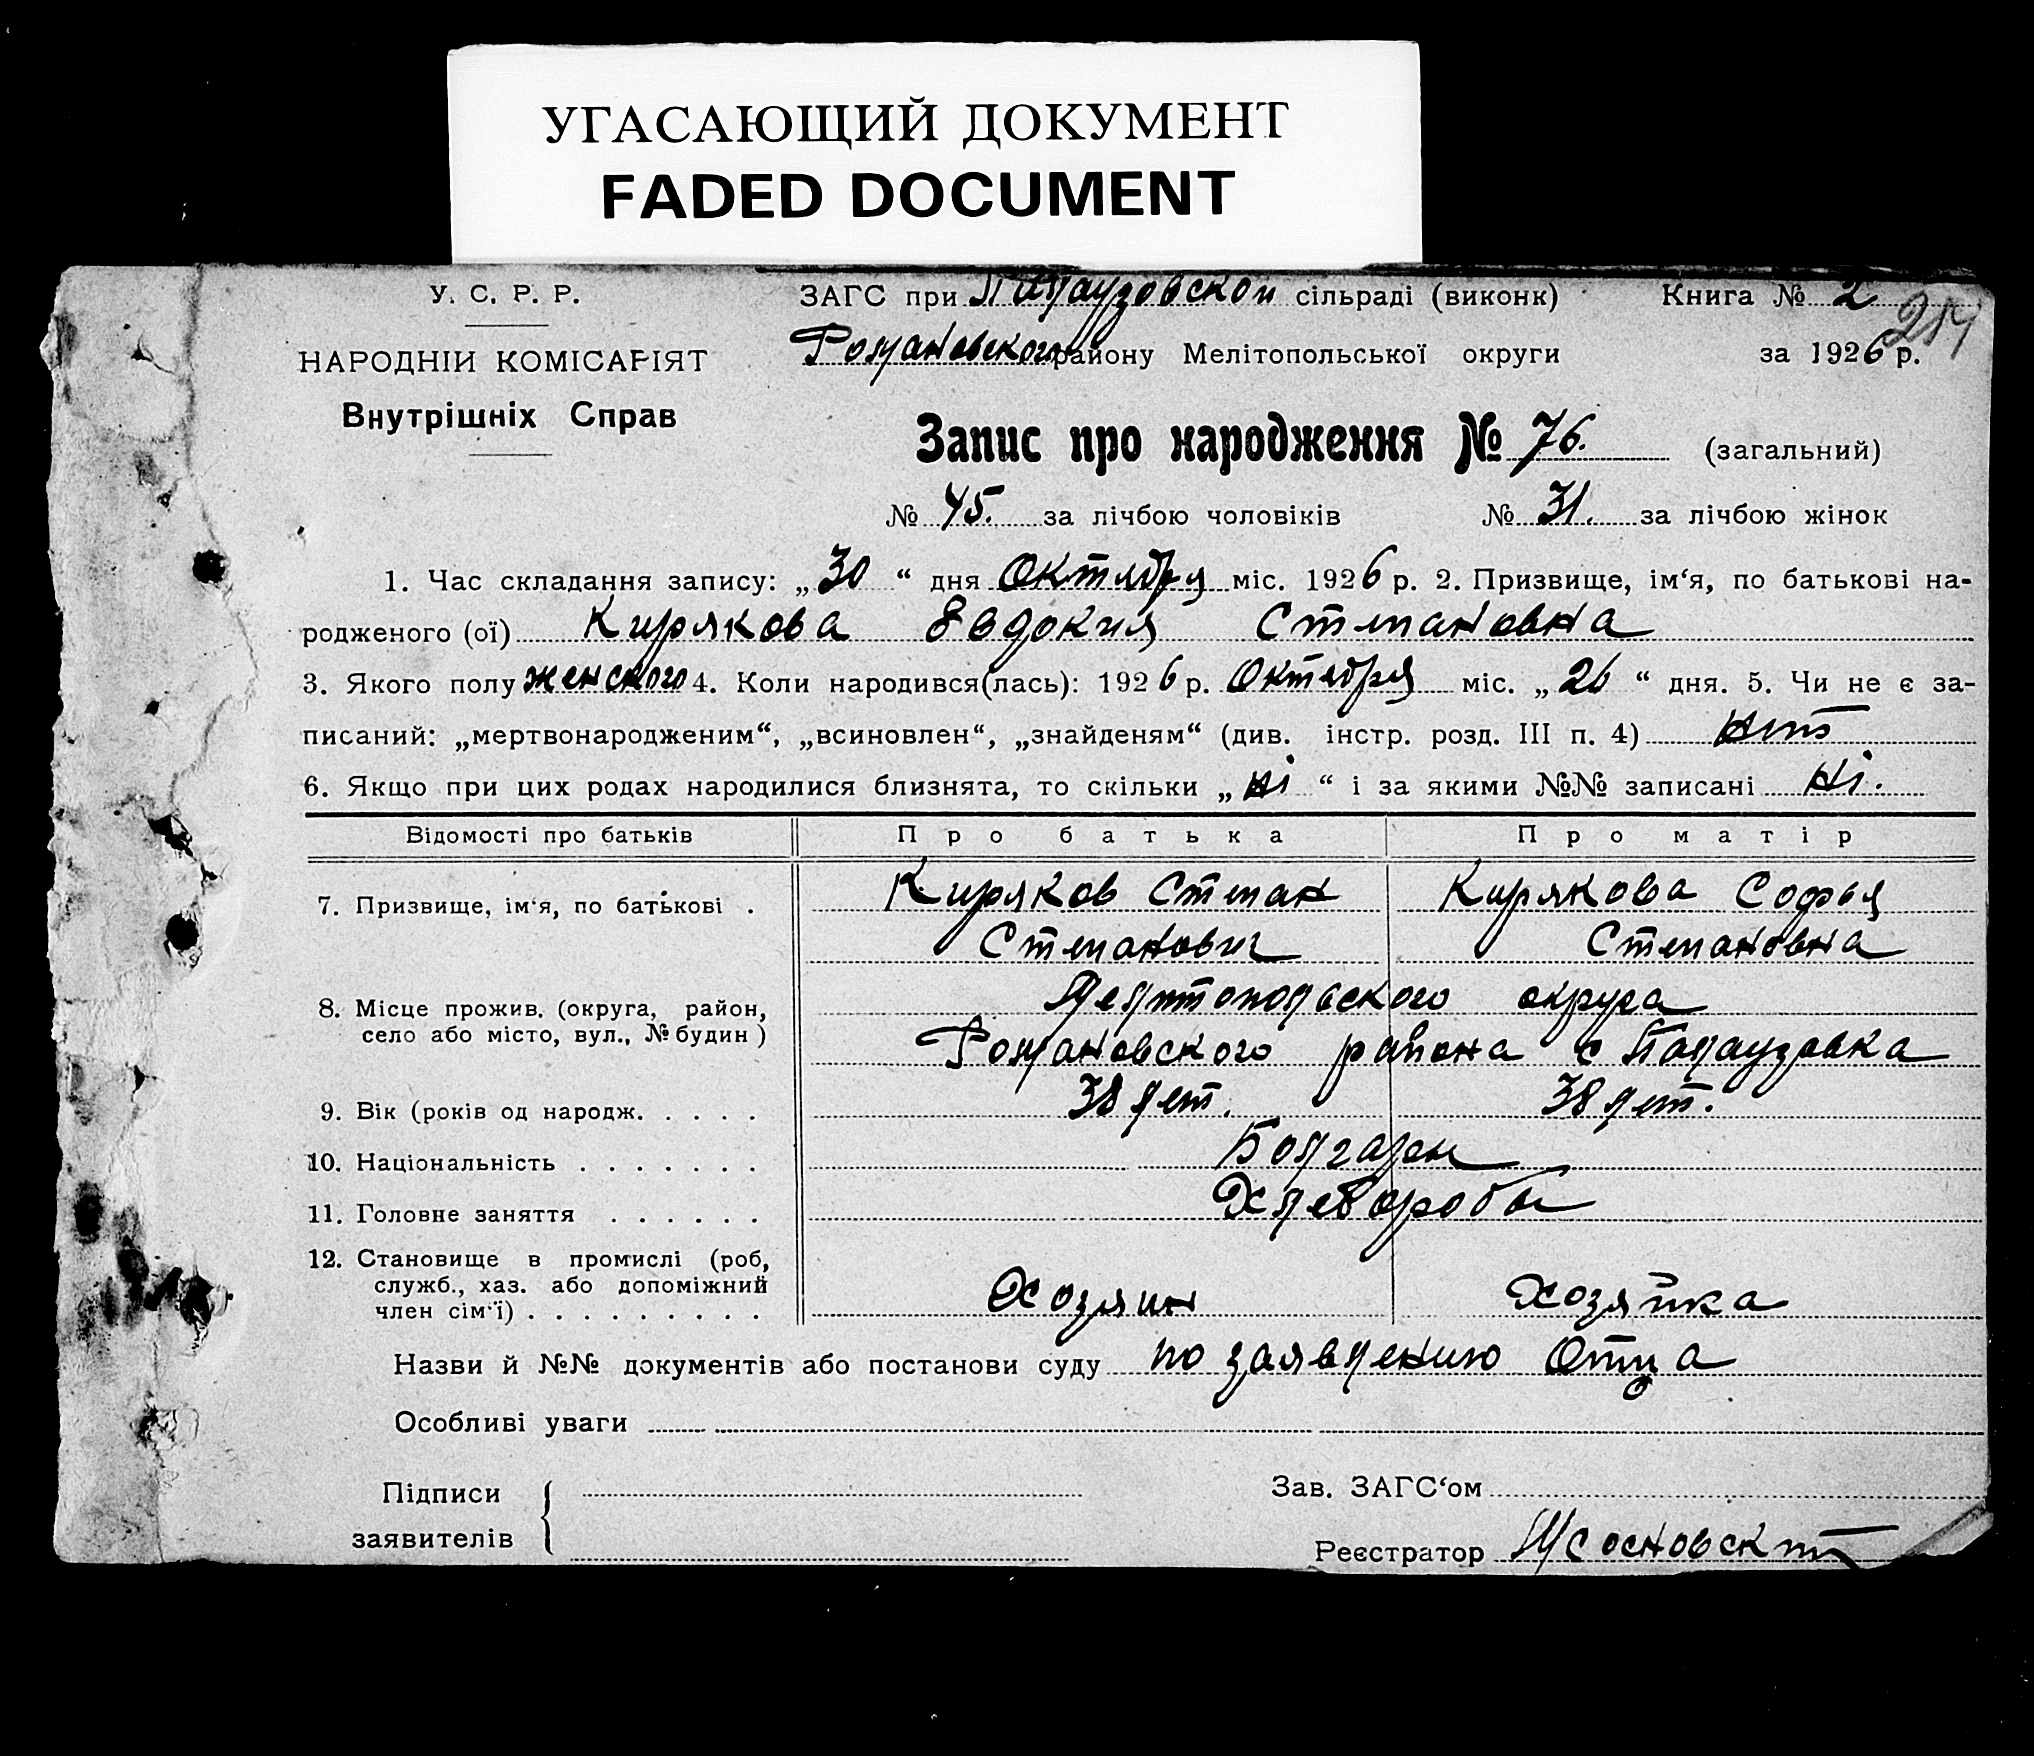 УГАСАЮЩИЙ ДОКУМЕНТ
FADED DOCUMENT
У. С. Р. Р.
ЗАГС при Палаузовской сільраді (виконк) Книга № 2
НАРОДНІЙ КОМІСАРІЯТ
Романовского району Мелітопольської округи за 1926 р.
Внутрішніх Справ
Запис про народження № 76. (загальний)
№ 45. за лічбою чоловіків № 31. за лічбою жінок
1. Час складання запису: „30“ дня Октября міс. 1926 р. 2. Призвище, ім‘я, по батькові на-
родженого (ої) Кирякова Евдокия Степановна
3. Якого полу женского 4. Коли народився(лась): 1926 р. Октября міс. „26“ дня. 5. Чи не є за-
писаний: „мертвонародженим“, „всиновлен“, „знайденям“ (див. інстр. розд. III п. 4) нет
6. Якщо при цих родах народилися близнята, то скільки „ні“ і за якими №№ записані ні.
Відомості про батьків Про батька Про матір
7. Призвище, ім‘я, по батькові . Киряков Степан Кирякова Софья
Степанович Степановна
8. Місце прожив. (округа, район, Мелитопольского округа
село або місто, вул., № будин ) Романовского района с Палаузовка
9. Вік (років од народж. . . . . 38 лет. 38 лет.
10. Національність . . . . . . . Болгары
11. Головне заняття . . . . . . Хлеборобы
12. Становище в промислі (роб,
служб., хаз. або допоміжний
член сім‘ї) . . . . . . . . . Хозяин Хозяйка
Назви й №№ документів або постанови суду по заявлению Отца
Особливі уваги
Підписи Зав. ЗАГС‘ом
заявителів
Реєстратор